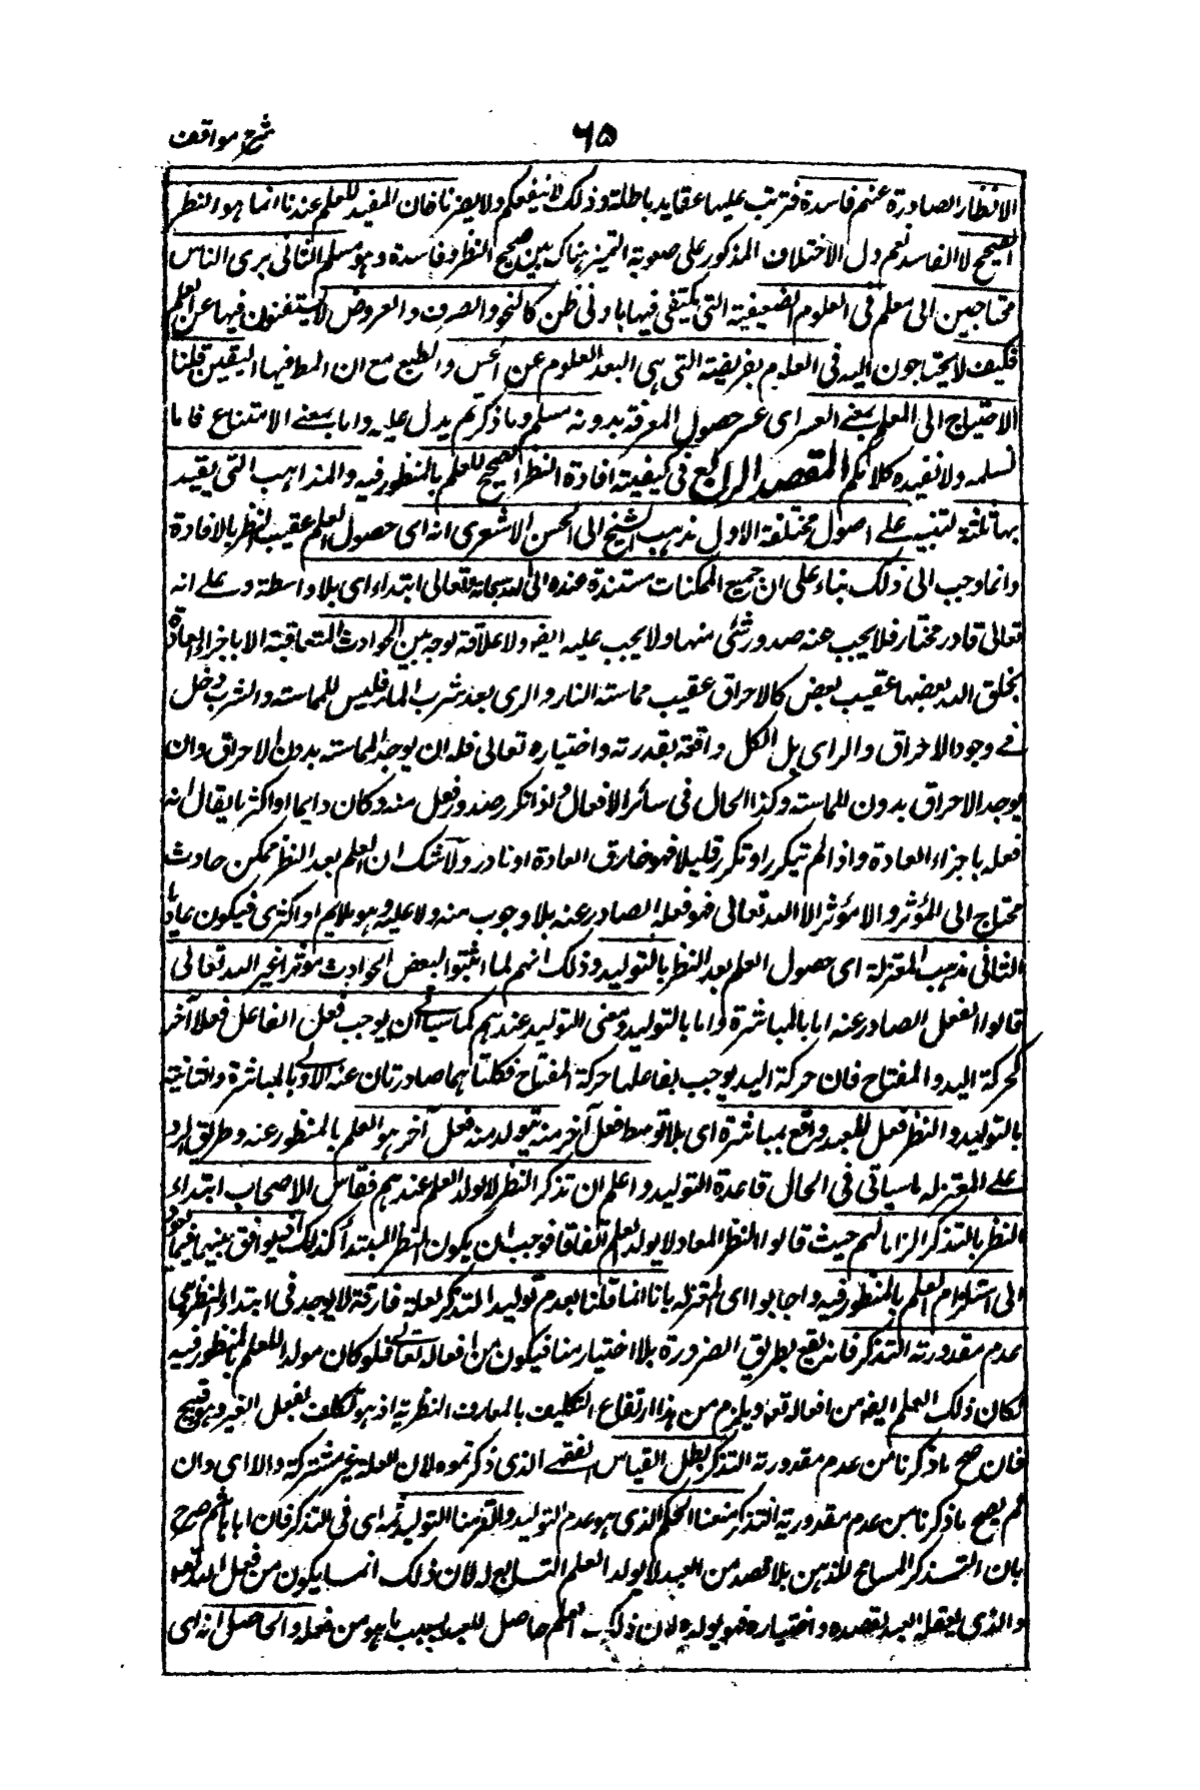 ٦٥
شرح مواقف
الانظار الصادرة عنهم فاسدة فترتب عليها عقايد باطلة وذلك لا ينفعكم ولا يضرنا فان المفيد للعلم عندنا انما هو النظر
الصحيح لا الفاسد نعم دل الاختلاف المذكور على صعوبة التميز هناك بين صحيح النظر وفاسده وهو مسلم الثانى نرى الناس
محتاجين الى معلم فى العلوم الضعيفة التى يكتفى فيها بادنى ظن كالنحو والصرف والعروض لا يستغنون فيها عن المعلم
فكيف لا يحتاجون اليه فى العلوم التى هى ابعد العلوم عن الحس والطبع مع ان المط فيها اليقين قلنا
الاحتياج الى المعلم بمعنى العسر اى عسر حصول المعرفة بدونه مسلم وما ذكرتم يدل عليه واما بمعنى الامتناع فلا
نسلمه ولا يفيده كلامكم المقصد الرابع فى كيفية افادة النظر الصحيح للعلم بالمنظور فيه والمذاهب التى يعتد
بها ثلثة تبتنى على اصول مختلفة الاول مذهب الشيخ ابى الحسن الاشعرى انه اى حصول العلم عقيب النظر بالعادة
وانما ذهب الى ذلك بناء على ان جميع الممكنات مستندة عنده الى الله سبحانه وتعالى ابتداء اى بلا واسطة وعلى انه
تعالى قادر مختار فلا يجب عنه صدور شئ منها ولا يجب عليه ايضا ولا علاقة بوجه بين الحوادث المتعاقبة الا باجراء العادة
بخلق الله بعضها عقيب بعض كالاحراق عقيب مماسة النار والرى بعد شرب الماء فليس للمماسة والشرب دخل
فى وجود الاحراق والرى بل الكل واقعة بقدرته واختياره تعالى فله ان يوجد المماسة بدون الاحراق وان
يوجد الاحراق بدون المماسة وكذا الحال فى سائر الافعال واذا تكرر صدور فعل منه وكان دايما او اكثريا يقال انه
فعله باجراء العادة واذا لم يتكرر او تكرر قليلا فهو خارق العادة او نادر ولا شك ان العلم بعد النظر ممكن حادث
محتاج الى المؤثر ولا مؤثر الا الله تعالى فهو فعله الصادر عنه بلا وجوب منه ولا عليه وهو دايم او اكثرى فيكون عاديا
الثانى مذهب المعتزلة اى حصول العلم بعد النظر بالتوليد وذلك انهم لما اثبتوا لبعض الحوادث مؤثرا غير الله تعالى
قالوا الفعل الصادر عنه اما بالمباشرة واما بالتوليد ومعنى التوليد عندهم كما سياتى ان يوجب فعل الفاعل فعلا آخر
كحركة اليد والمفتاح فان حركة اليد يوجب بفاعلها حركة المفتاح فكلتاهما صادرتان عنه الاولى بالمباشرة والثانية
بالتوليد والنظر فعل للعبد واقع بمباشرة اى بلا توسط فعل آخر منه يتولد منه فعل آخر هو العلم بالمنظور عنه وطريق الرد
على المعتزلة ما سياتى فى الحال قاعدة التوليد واعلم ان تذكر النظر لا يولد العلم عندهم فقاس الاصحاب ابتداء
النظر بالتذكر الزاما لهم حيث قالوا النظر المعاد لا يولد العلم اتفاقا فوجب ان يكون النظر المبتدأ كذلك
الى استلزام العلم بالمنظور فيه واجابوا اى المعتزلة بانا انما قلنا بعدم توليد التذكر لعلة فارقة لا يوجد فى ابتداء النظر هى
عدم مقدورية التذكر فانه يقع بطريق الضرورة بلا اختيار منا فيكون من افعاله تعالى فلو كان مولدا للعلم بالمنظور فيه
لكان ذلك العلم ايضا من افعاله تعه ويلزم من هذا ارتفاع التكليف بالمعارف النظرية اذ هو تكليف بفعل الغير وهو قبيح
فان صح ما ذكرنا من عدم مقدورية التذكر بطل القياس الفقهى الذى ذكرتموه لان العلة غير مشتركة والا اى وان
لم يصح ما ذكرنا من عدم مقدورية التذكر منعنا الحكم الذى هو عدم التوليد والتزمنا التوليد ثمه اى فى التذكر فان ابا هاشم صرح
بان التذكر السانح للذهن بلا قصد من العبد لا يولد العلم التابع له لان ذلك انما يكون من فعل الله تعه
والذى يفعله العبد بقصده واختياره فهو يولده لان ذلك العلم حاصل للعبد بسبب ما هو من فعله والحاصل انه اى